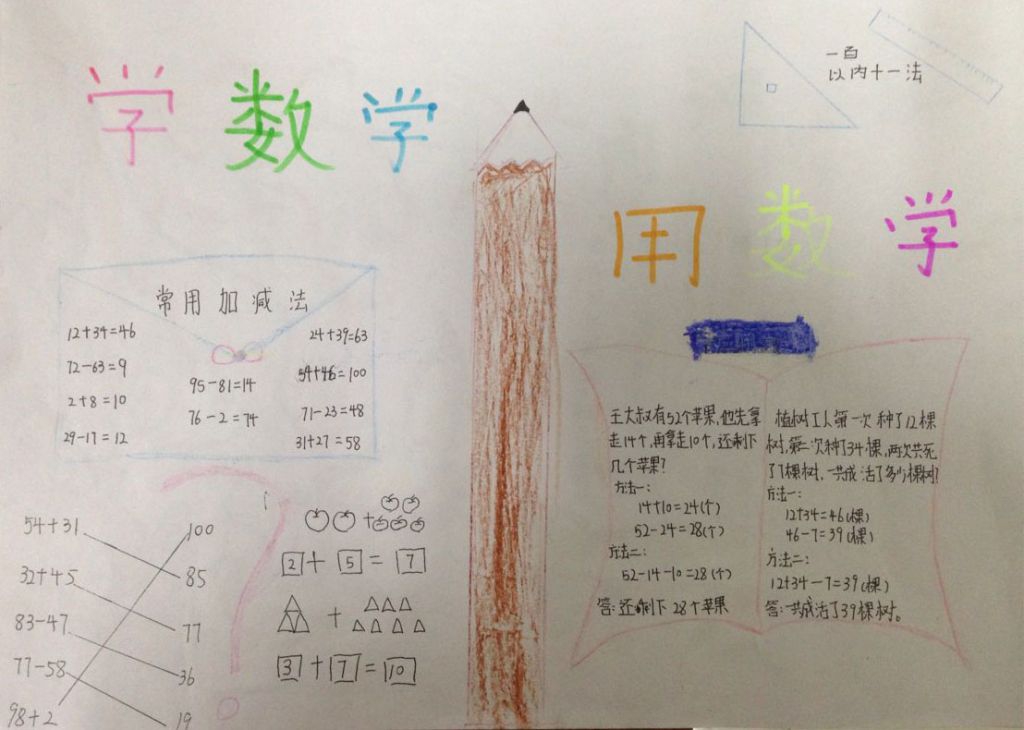 学数学
一百
以内十一法
用数学
常用加减法
12+34=46
72-63=9
2+8=10
29-17=12
95-81=14
76-2=74
24+39=63
54+46=100
71-23=48
31+27=58
54+31
32+45
83-47
77-58
98+2
100
85
77
36
19
+
2+5=7
+
3+7=10
王大叔有52个苹果,他先拿
走14个,再拿走10个,还剩下
几个苹果?
方法一:
14+10=24(个)
52-24=28(个)
方法二:
52-14-10=28(个)
答:还剩下28个苹果
植树工人第一次种了12棵
树,第二次种了34棵,两次共死
了7棵树,一共成活了多少棵树?
方法一:
12+34=46(棵)
46-7=39(棵)
方法二:
12+34-7=39(棵)
答:一共成活了39棵树。